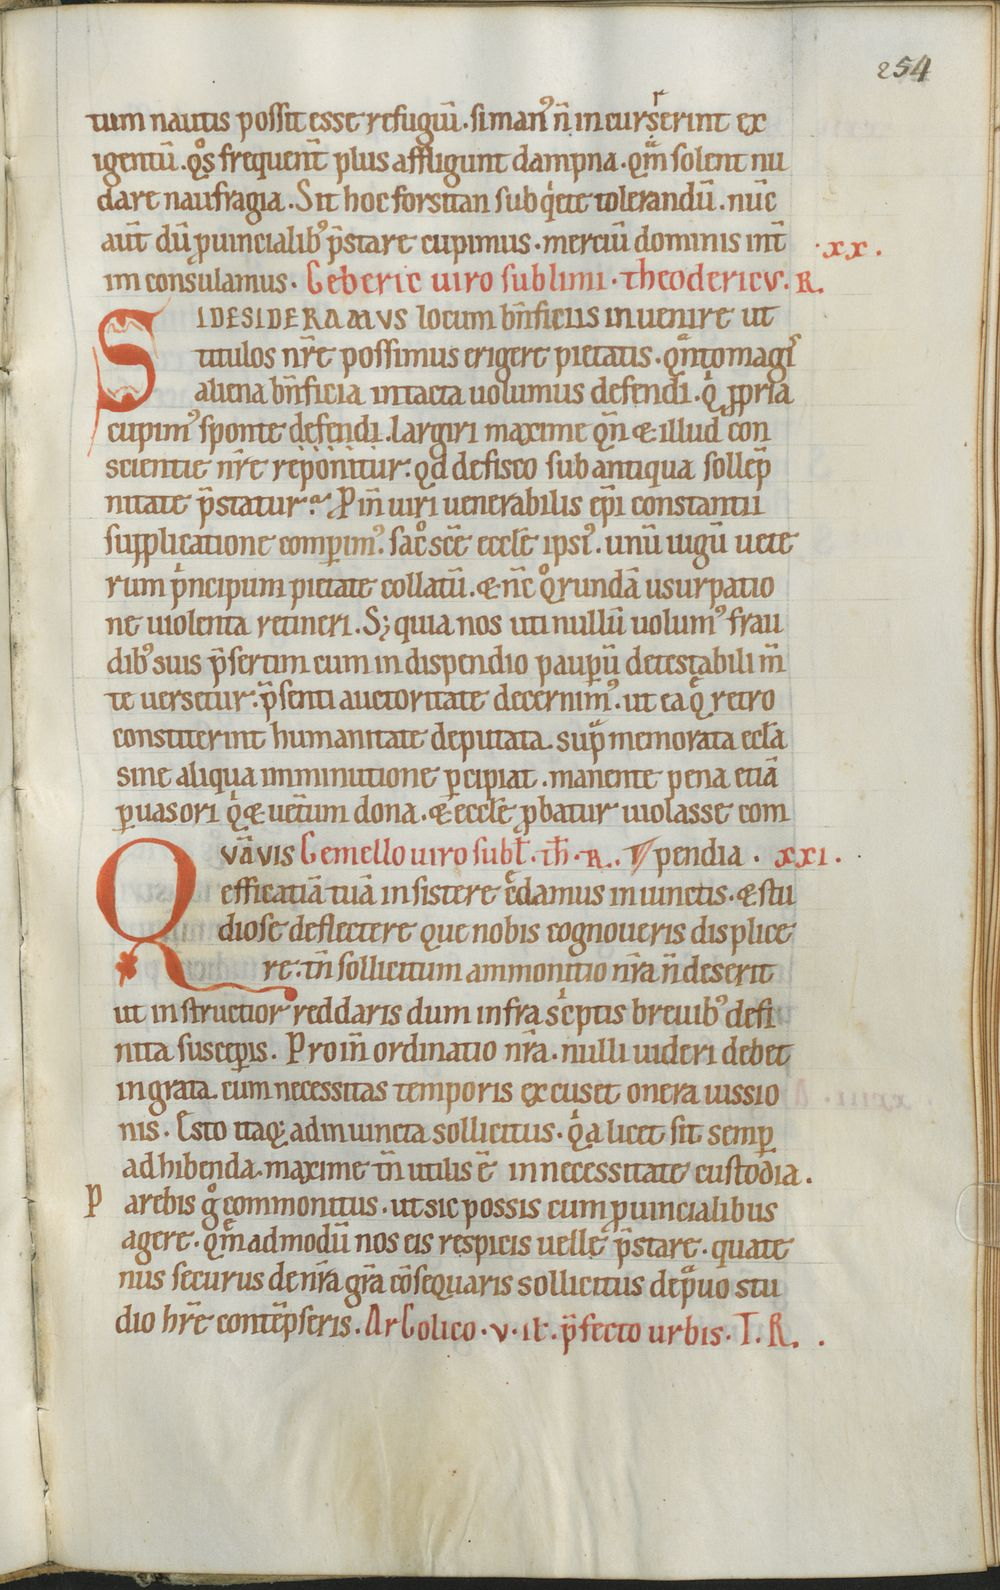 254
tum nautis possit esse refugiū. si man᷒ n̄ incurserint ex
igentū. q̊s frequent̄ plus affligunt dampna. qᷓm solent nu
dare naufragia. Sit hoc forsitan sub qͥete tolerandū. nūc
aut̄ dū ꝓuincialibꝰ p̄stare cupimus. merciū dominis int̄ ·xx·
im consulamus. Geberic uiro sublimi· theodericus. R.
SI DESIDERAMVS locum bn̄ficiis inuenire ut
titulos nr̄e possimus erigere pietatis. qᷓnto magiꝰ
aliena bn̄ficia intacta uolumus defendi. qͥ ꝓpria
cupimꝰ sponte defendi. largiri maxime qn̄ & illud con
scientie nr̄e reponitur. qd de fisco sub antiqua sollep̄
nitate p̄statur. Proin̄ uiri uenerabilis ep̄i constantii
supplicatione comꝑimꝰ. sac̊sc̄e eccl̄e ipsiꝰ. unū iugū uete
rum pͥncipum pietate collatū. & nc̄ q̊rundā usurpatio
ne uiolenta retineri. S; quia nos uti nullū uolumꝰ frau
dibꝰ suis p̄sertim cum in dispendio pauꝑū detestabili m̄
te uersetur. p̄senti auctoritate decernimꝰ. ut ea qͤ retro
constiterint humanitate deputata. supᷓ memorata eccl̄a
sine aliqua imminutione ꝑcipiat. manente pena etiā
ꝑuasori qͥ & uetitum dona. & eccl̄e ꝓbatur uiolasse com
QVĀVIS Gemello uiro subl̄. th̄. R. pendia. xxi.
efficatiā tuā insistere cͤdamus iniunctis. & stu
diose deflectere que nobis cognoueris displice
re. tn̄ sollicitum ammonitio nr̄a n̄ deserit
ut instructior reddaris dum infra scͥptis breuibꝰ defi
nita susceꝑis. Proin̄ ordinatio nr̄a. nulli uideri debet
ingrata. cum necessitas temporis excuset onera iussio
nis. Esto itaq; ad iniuncta sollicitus. qͥa licet sit semꝑ
adhibenda. maxime tn̄ utilis ē in necessitate custodia.
Parebis g̊ commonitus. ut sic possis cum ꝓuincialibus
agere. qͤmadmodū nos eis respicis uelle p̄stare. quate
nus securus de nr̄a gr̄a cōsequaris sollicitus depᷓuo stu
dio hr̄e contēpseris. Argolico. v. il̄. p̄fecto urbis. T. R. .